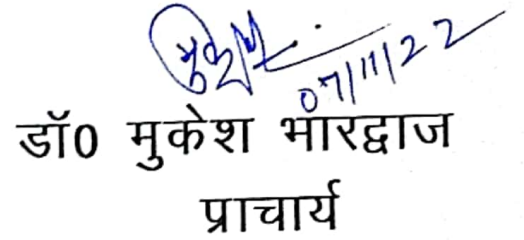 07/11/22
डॉ0 मुकेश भारद्वाज
प्राचार्य